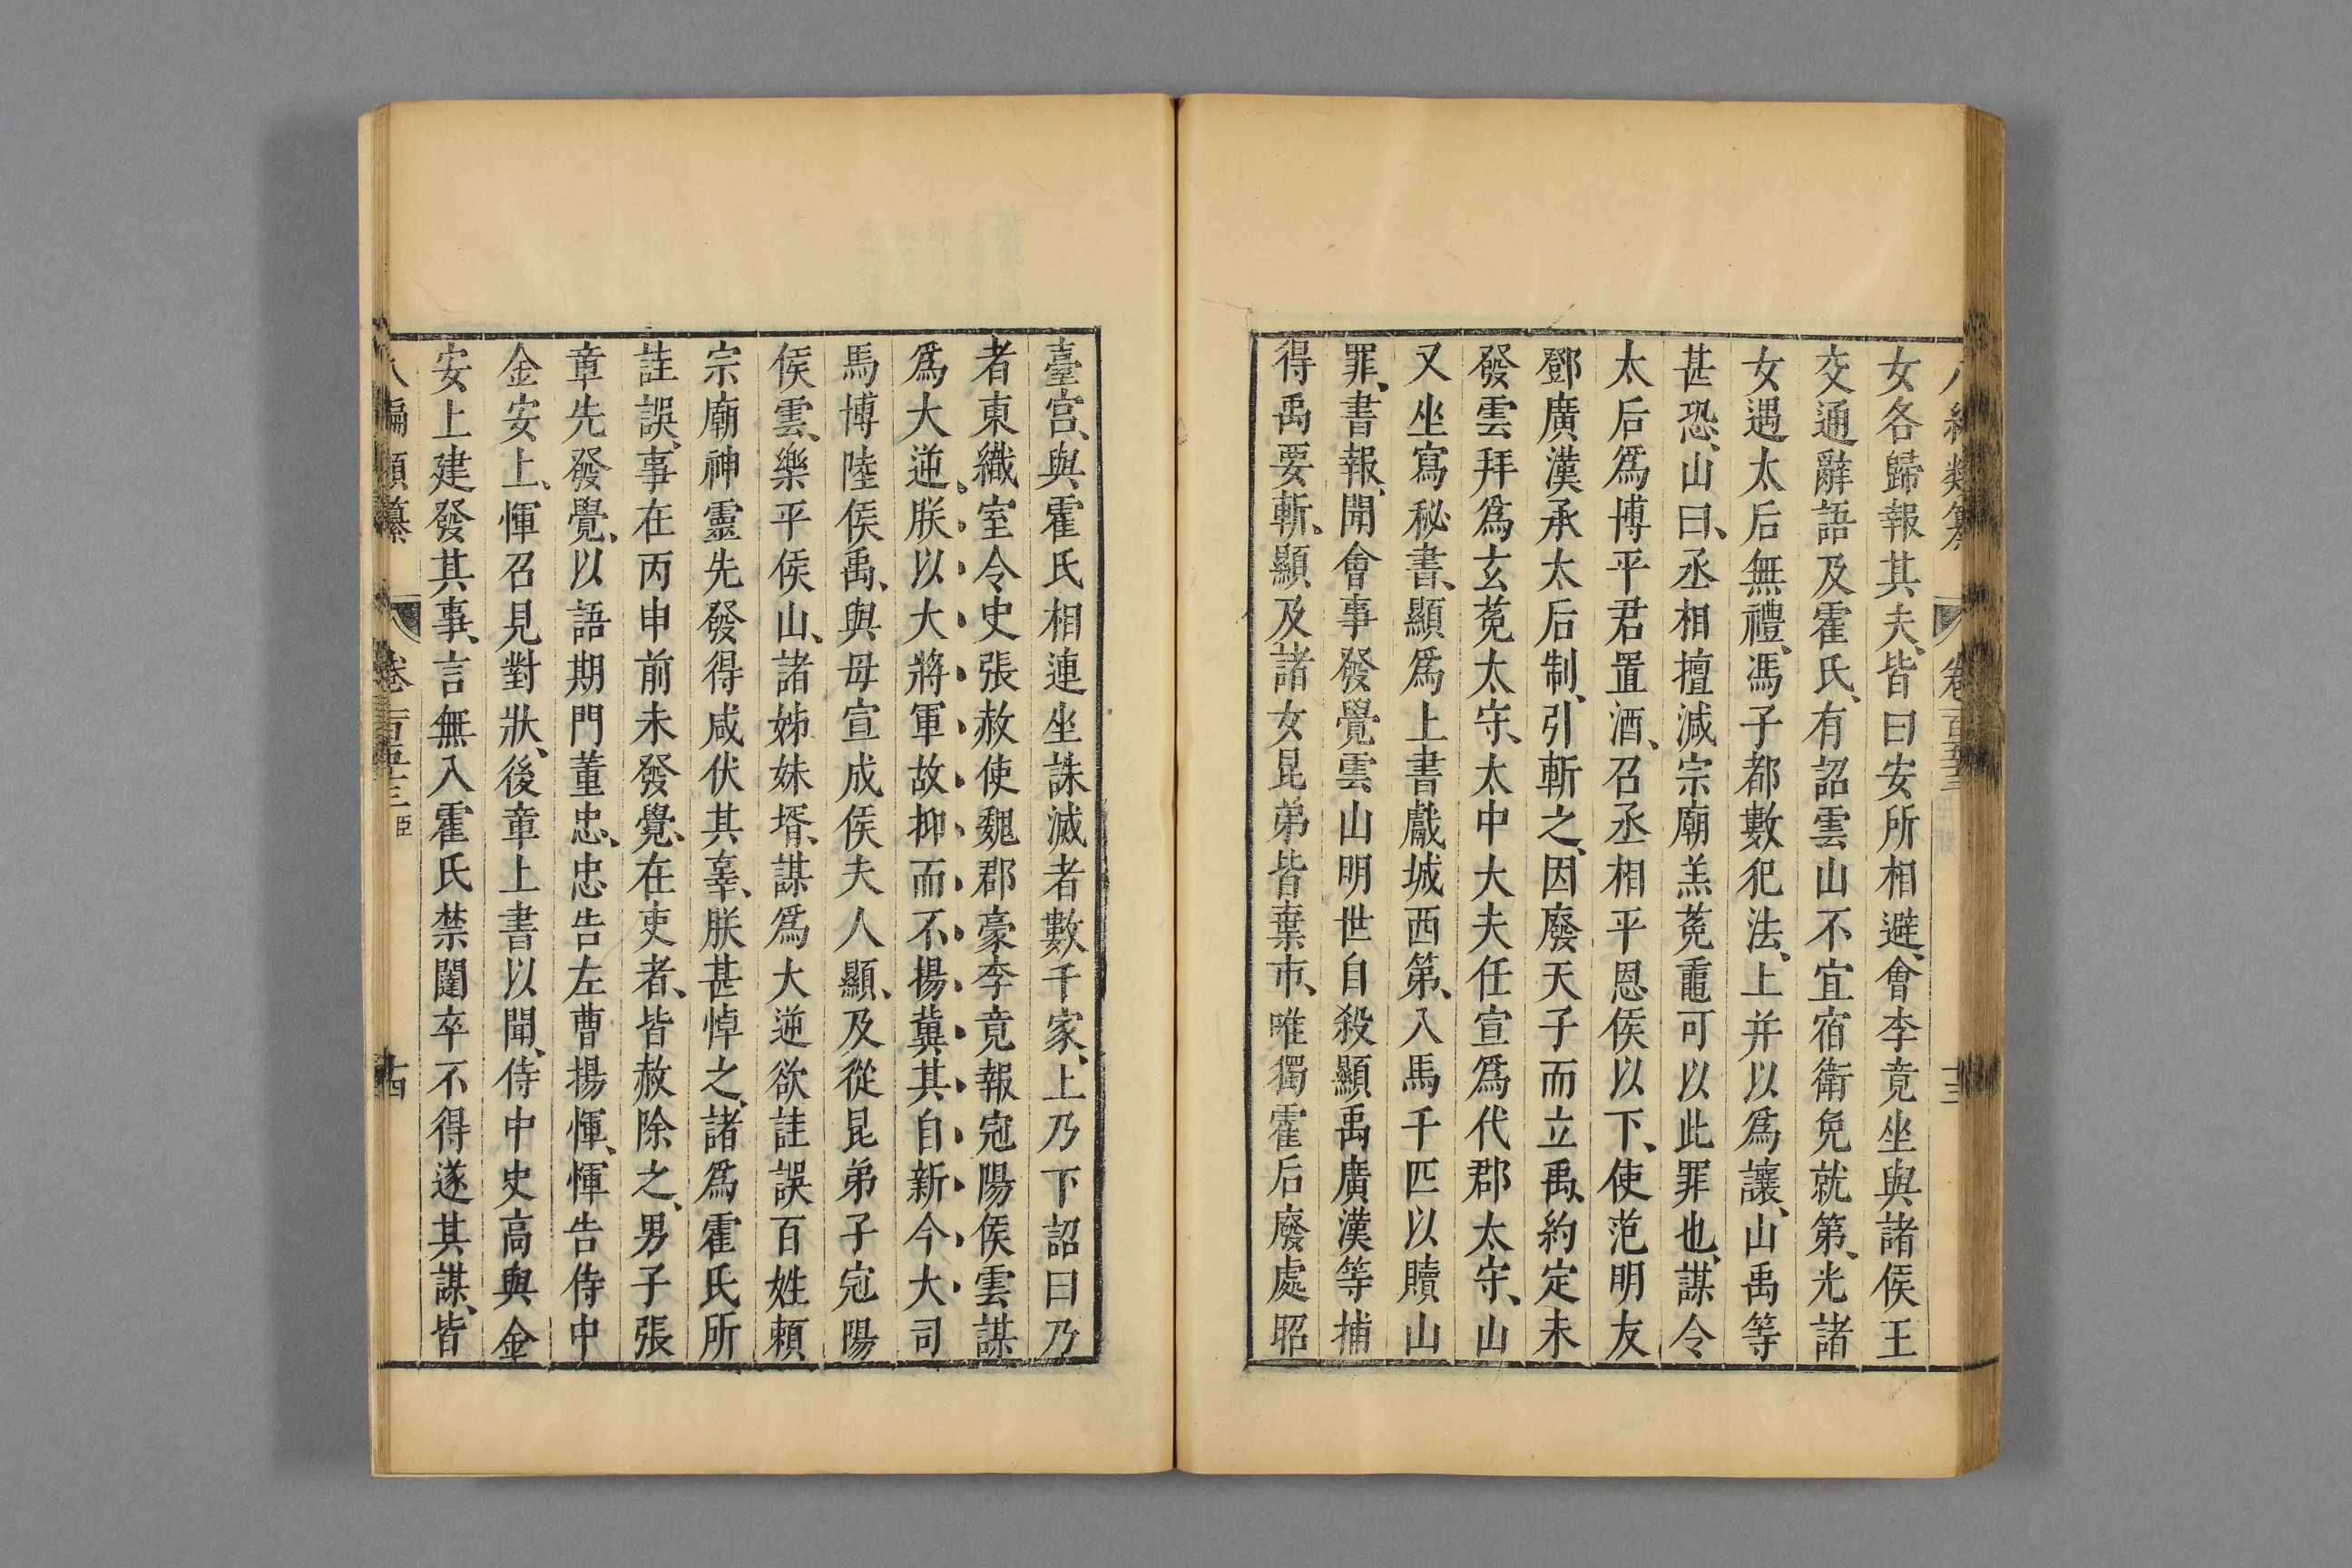 女各歸報其夫、皆曰安所相避、會李竟坐與諸侯王
交通辭語及霍氏、有詔雲山不宜宿衛免就第、光諸
女遇太后無禮、馮子都數犯法、上并以爲讓、山禹等
甚恐、山曰、丞相擅減宗廟羔菟鼁可以此罪也、謀令
太后爲博平君置酒、召丞相平恩侯以下、使范明友
鄧廣漢承太后制、引斬之、因廢天子而立禹、約定未
發雲拜爲玄菟太守、太中大夫任宣爲代郡太守、山
又坐寫秘書、顯爲上書獻城西第、入馬千匹以贖山
罪、書報聞、會事發覺雲山明世自殺顯禹廣漢等捕
得禹要斬、顯及諸女昆弟皆棄市、唯獨霍后廢處昭
臺宮、與霍氏相連坐誅滅者數千家、上乃下詔曰乃
者東織室令史張赦使魏郡豪李竟報冠陽侯雲謀
爲大逆、朕以大將軍故抑而不揚冀其自新今大司
馬博陸侯禹、與母宣成侯夫人顯、及從昆弟子冠陽
侯雲、樂平侯山、諸姊妹壻、謀爲大逆欲詿誤百姓賴
宗廟神靈先發得咸伏其辜、朕甚悼之、諸爲霍氏所
詿誤、事在丙申前未發覺、在吏者、皆赦除之、男子張
章先發覺、以語期門董忠、忠告左曹揚惲、惲告侍中
金安上、惲召見對狀、後章上書以聞、侍中史高與金
安上建發其事、言無入霍氏禁闥卒不得遂其謀、皆
編類纂 卷一百五十三 臣 十四